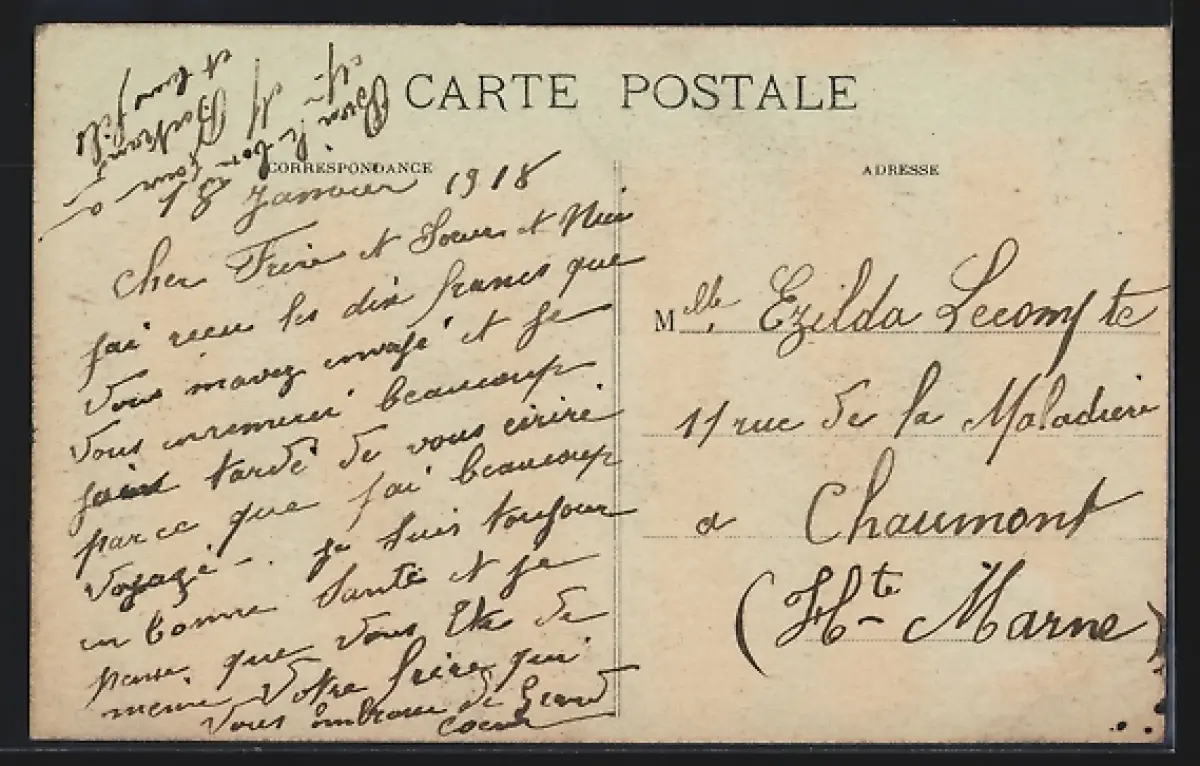 CARTE POSTALE
CORRESPONDANCE
ADRESSE
18 Janvier 1918
Cher Frère et Soeur et
jai recu les dix francs que
vous mavez envoyé et je
vous enremerci beaucoup
tardé de vous ecrire
parce que jai beaucoup
voyagé - . je suis toujour
en bonne santé et je
pense que vous etes de
meme Votre frère qui
vous embrasse de Grand
coeur
Bon
M
et
M
lle Ezilda Lecompte
11 rue de la Maladiere
a Chaumont
(Hte Marne)